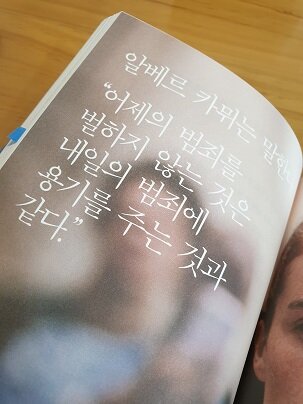 알베르 카뮈는 말한
“어제의 범죄를
벌하지 않는 것은
내일의 범죄에
용기를 주는 것과
같다.”